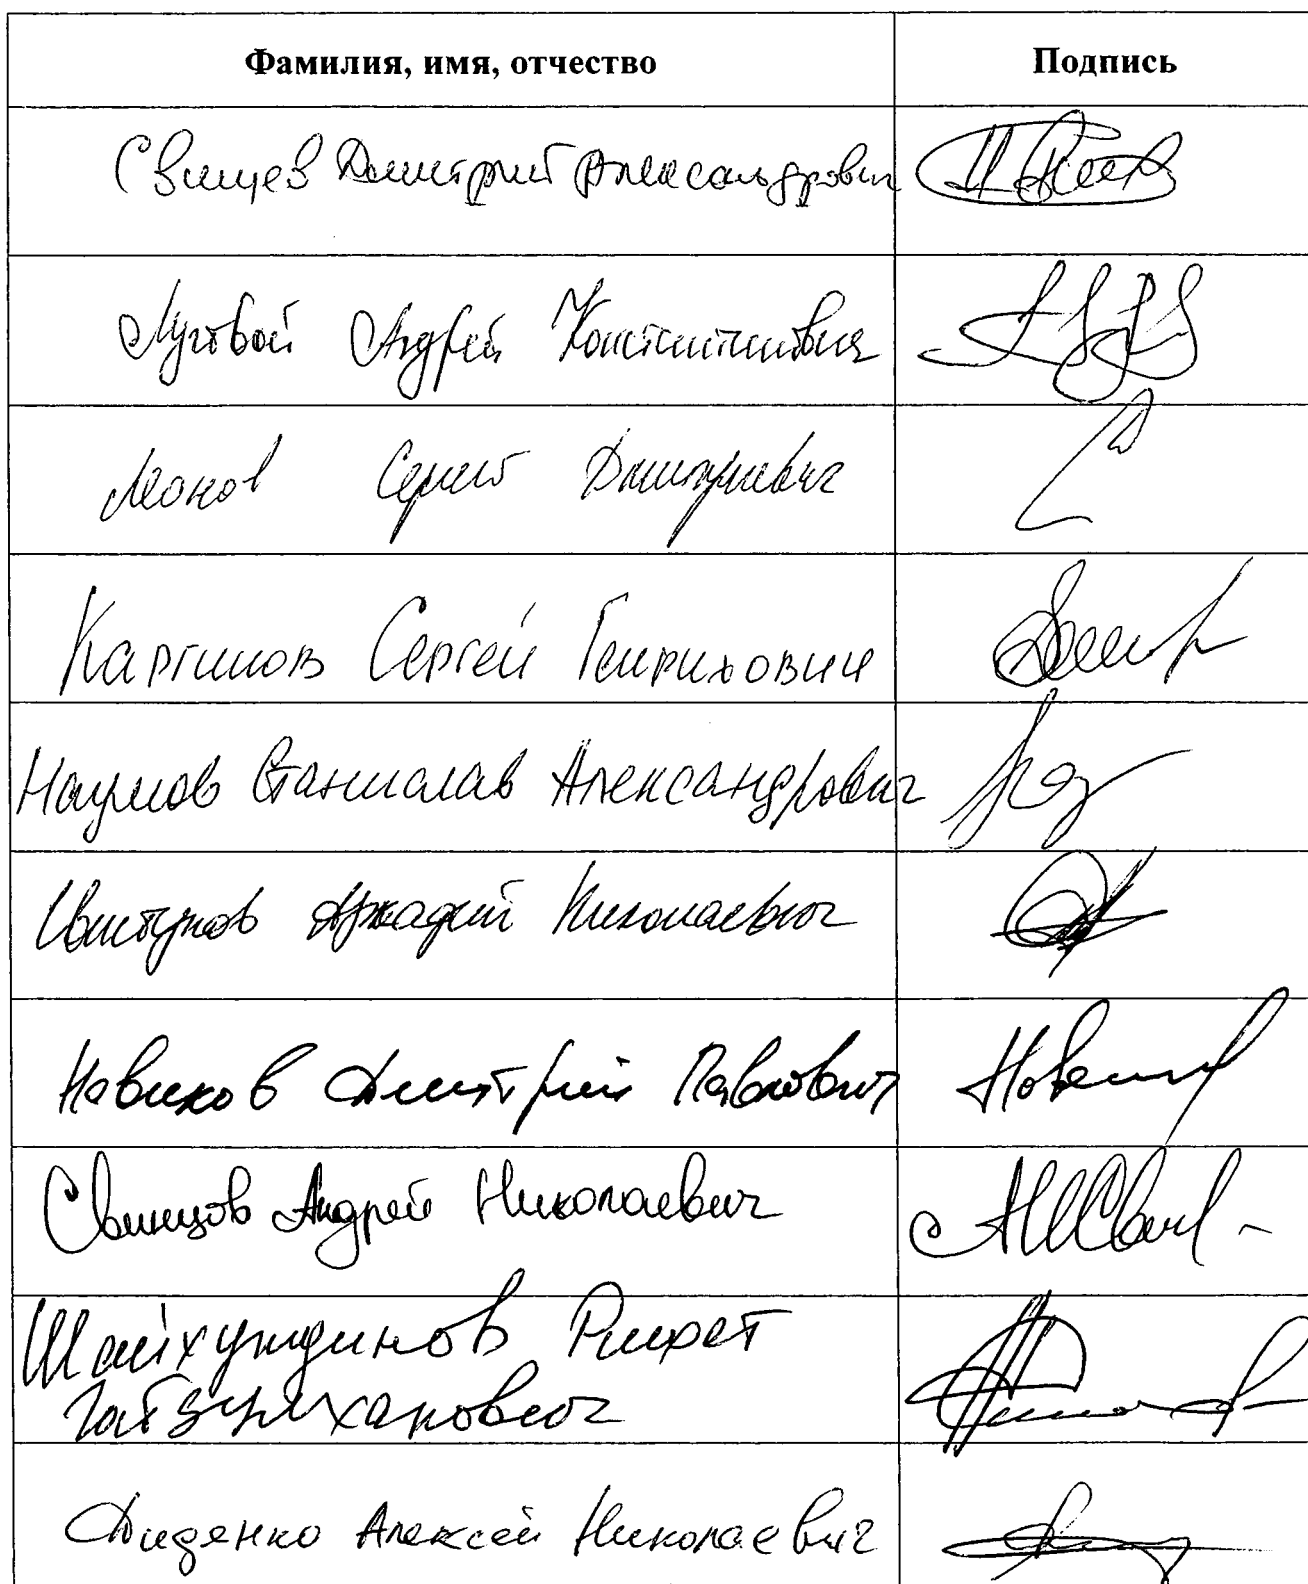 Фамилия, имя, отчество Подпись
Свищев Дмитрий Александрович
Луговой Андрей Константинович
Леонов Сергей Дмитриевич
Каргинов Сергей Генрихович
Наумов Станислав Александрович
Свистунов Аркадий Николаевич
Новиков Дмитрий Павлович
Свинцов Андрей Николаевич
Шайхутдинов Рифат
Габдулхакович
Диденко Алексей Николаевич